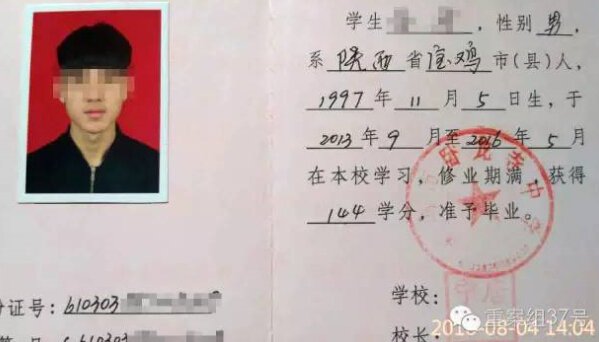 学生 ，性别 男，
系 陕西省宝鸡市(县)人，
1997年11月5日生，于
2013年9月至2016年5月
在本校学习，修业期满，获得
144学分，准予毕业。
份证号：610303
学校：
校长：
重案组37号
2016-08-04 14:04